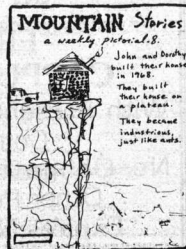 MOUNTAIN Stories
a weekly pictorial. 8.
John and Dorothy
built their house
in 1968.
They built
their house on
a plateau.
They became
industrious,
just like ants.